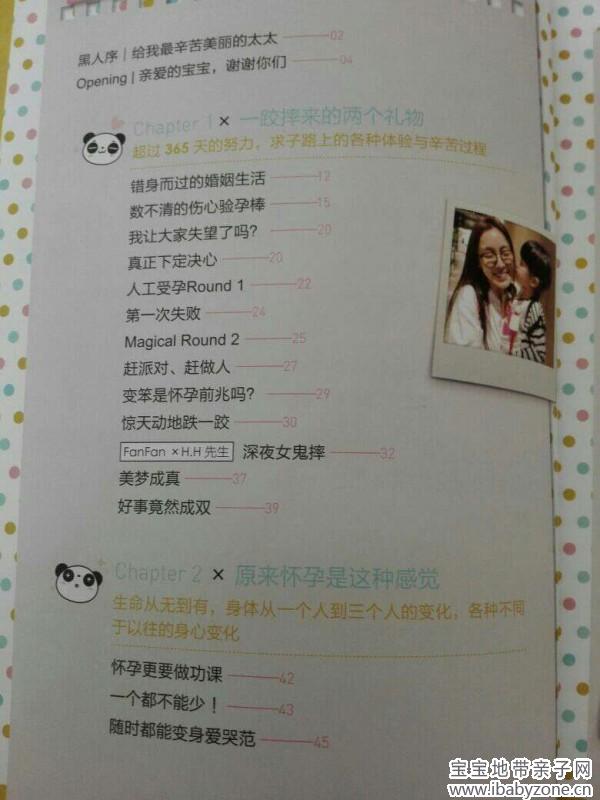 黑人序｜给我最辛苦美丽的太太 02
Opening｜亲爱的宝宝，谢谢你们 04
Chapter 1 × 一跤摔来的两个礼物
超过 365 天的努力，求子路上的各种体验与辛苦过程
错身而过的婚姻生活 12
数不清的伤心验孕棒 15
我让大家失望了吗？ 20
真正下定决心 20
人工受孕Round 1 22
第一次失败 24
Magical Round 2 25
赶派对、赶做人 27
变笨是怀孕前兆吗？ 29
惊天动地跌一跤 30
FanFan × H.H 先生 深夜女鬼摔 32
美梦成真 37
好事竟然成双 39
Chapter 2 × 原来怀孕是这种感觉
生命从无到有，身体从一个人到三个人的变化，各种不同
于以往的身心变化
怀孕更要做功课 42
一个都不能少！ 43
随时都能变身爱哭范 45
宝宝地带亲子网
www.ibabyzone.cn